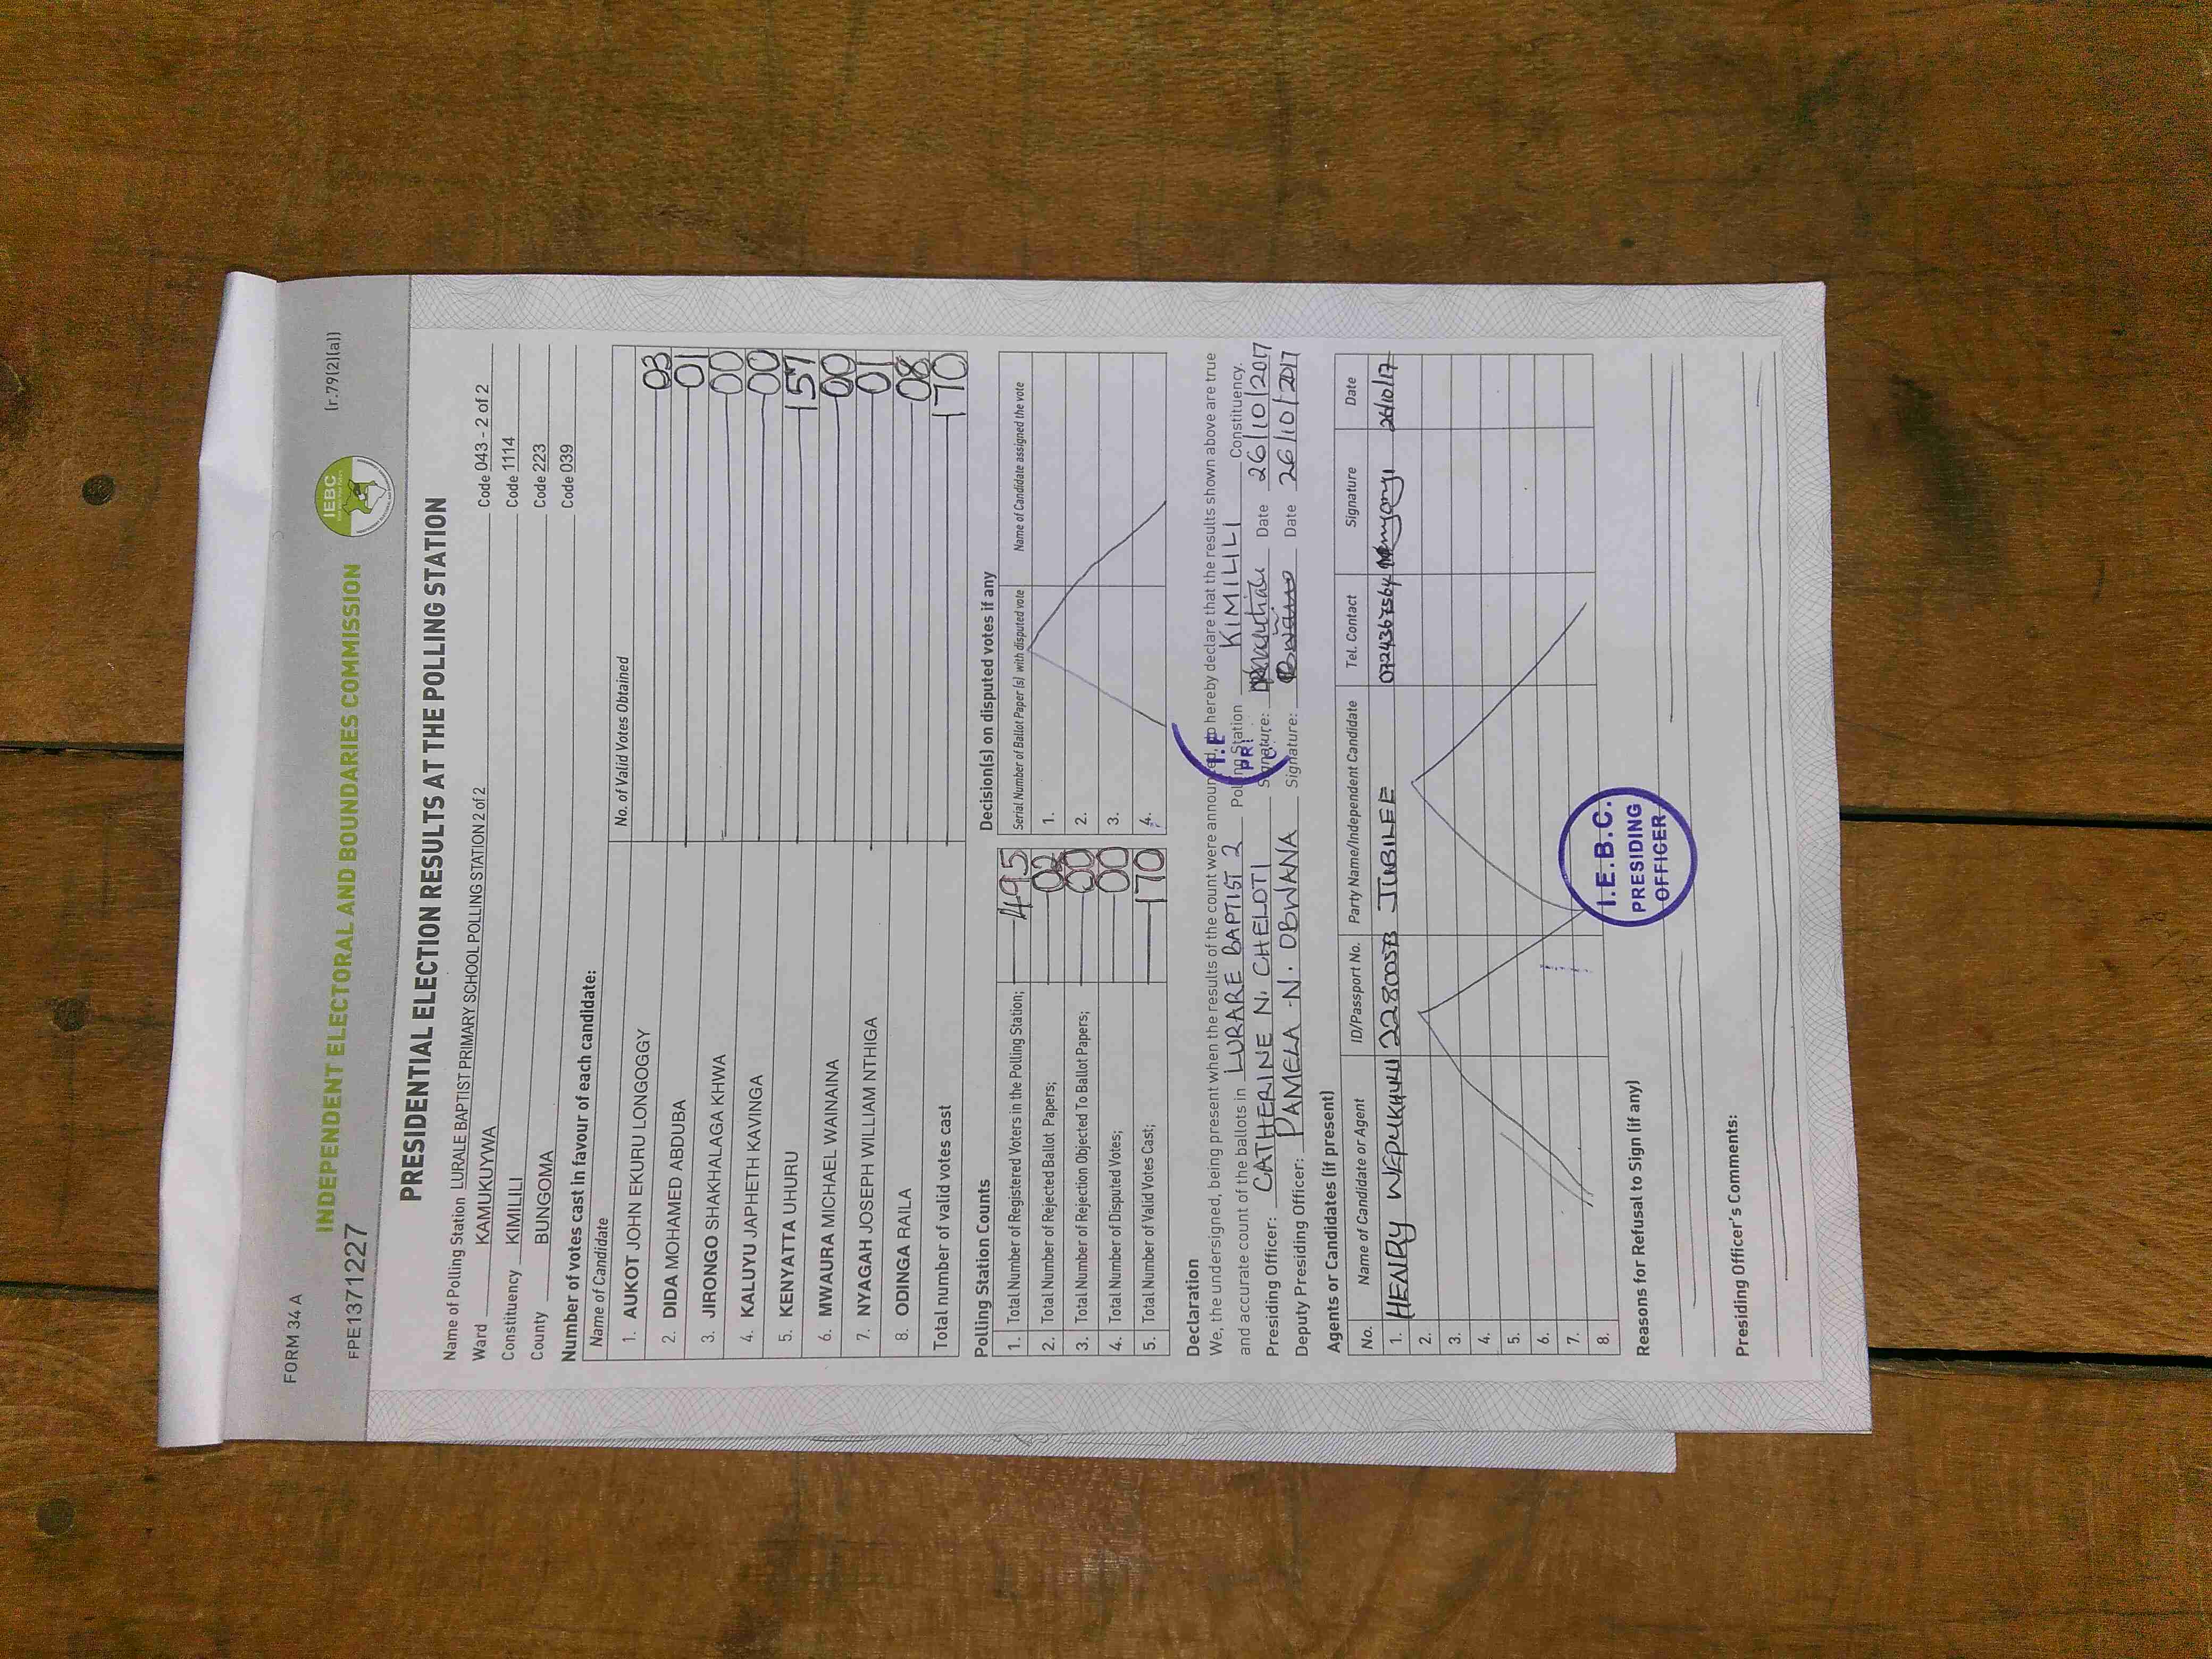 FORM 34 A
(r.79(2)(a))
IEBC
INDEPENDENT ELECTORAL AND BOUNDARIES COMMISSION
FPE1371227
PRESIDENTIAL ELECTION RESULTS AT THE POLLING STATION
Name of Polling Station LURALE BAPTIST PRIMARY SCHOOL POLLING STATION 2 of 2 Code 043 - 2 of 2
Ward KAMUKUYWA Code 1114
Constituency KIMILILI Code 223
County BUNGOMA Code 039
Number of votes cast in favour of each candidate:
Name of Candidate No. of Valid Votes Obtained
1. AUKOT JOHN EKURU LONGOGGY 03
2. DIDA MOHAMED ABDUBA 01
3. JIRONGO SHAKHALAGA KHWA 00
4. KALUYU JAPHETH KAVINGA 00
5. KENYATTA UHURU 157
6. MWAURA MICHAEL WAINAINA 00
7. NYAGAH JOSEPH WILLIAM NTHIGA 01
8. ODINGA RAILA 08
Total number of valid votes cast 170
Polling Station Counts
1. Total Number of Registered Voters in the Polling Station; 495
2. Total Number of Rejected Ballot Papers; 02
3. Total Number of Rejection Objected To Ballot Papers; 00
4. Total Number of Disputed Votes; 00
5. Total Number of Valid Votes Cast; 170
Decision(s) on disputed votes if any
Serial Number of Ballot Paper (s) with disputed vote Name of Candidate assigned the vote
1.
2.
3.
4.
Declaration
We, the undersigned, being present when the results of the count were announced, do hereby declare that the results shown above are true
and accurate count of the ballots in LURARE BAPTIST 2 Polling Station KIMILILI Constituency.
Presiding Officer: CATHERINE N. CHELOTI Signature: Date 26/10/2017
Deputy Presiding Officer: PAMELA N. OBWANA Signature: Date 26/10/2017
Agents or Candidates (if present)
No. Name of Candidate or Agent ID/Passport No. Party Name/Independent Candidate Tel. Contact Signature Date
1. HENRY WEPUKHULU 22800573 JUBILEE 0724367564 26/10/17
2.
3.
4.
5.
6.
7.
8.
I.E.B.C.
PRESIDING
OFFICER
Reasons for Refusal to Sign (if any)
Presiding Officer's Comments: